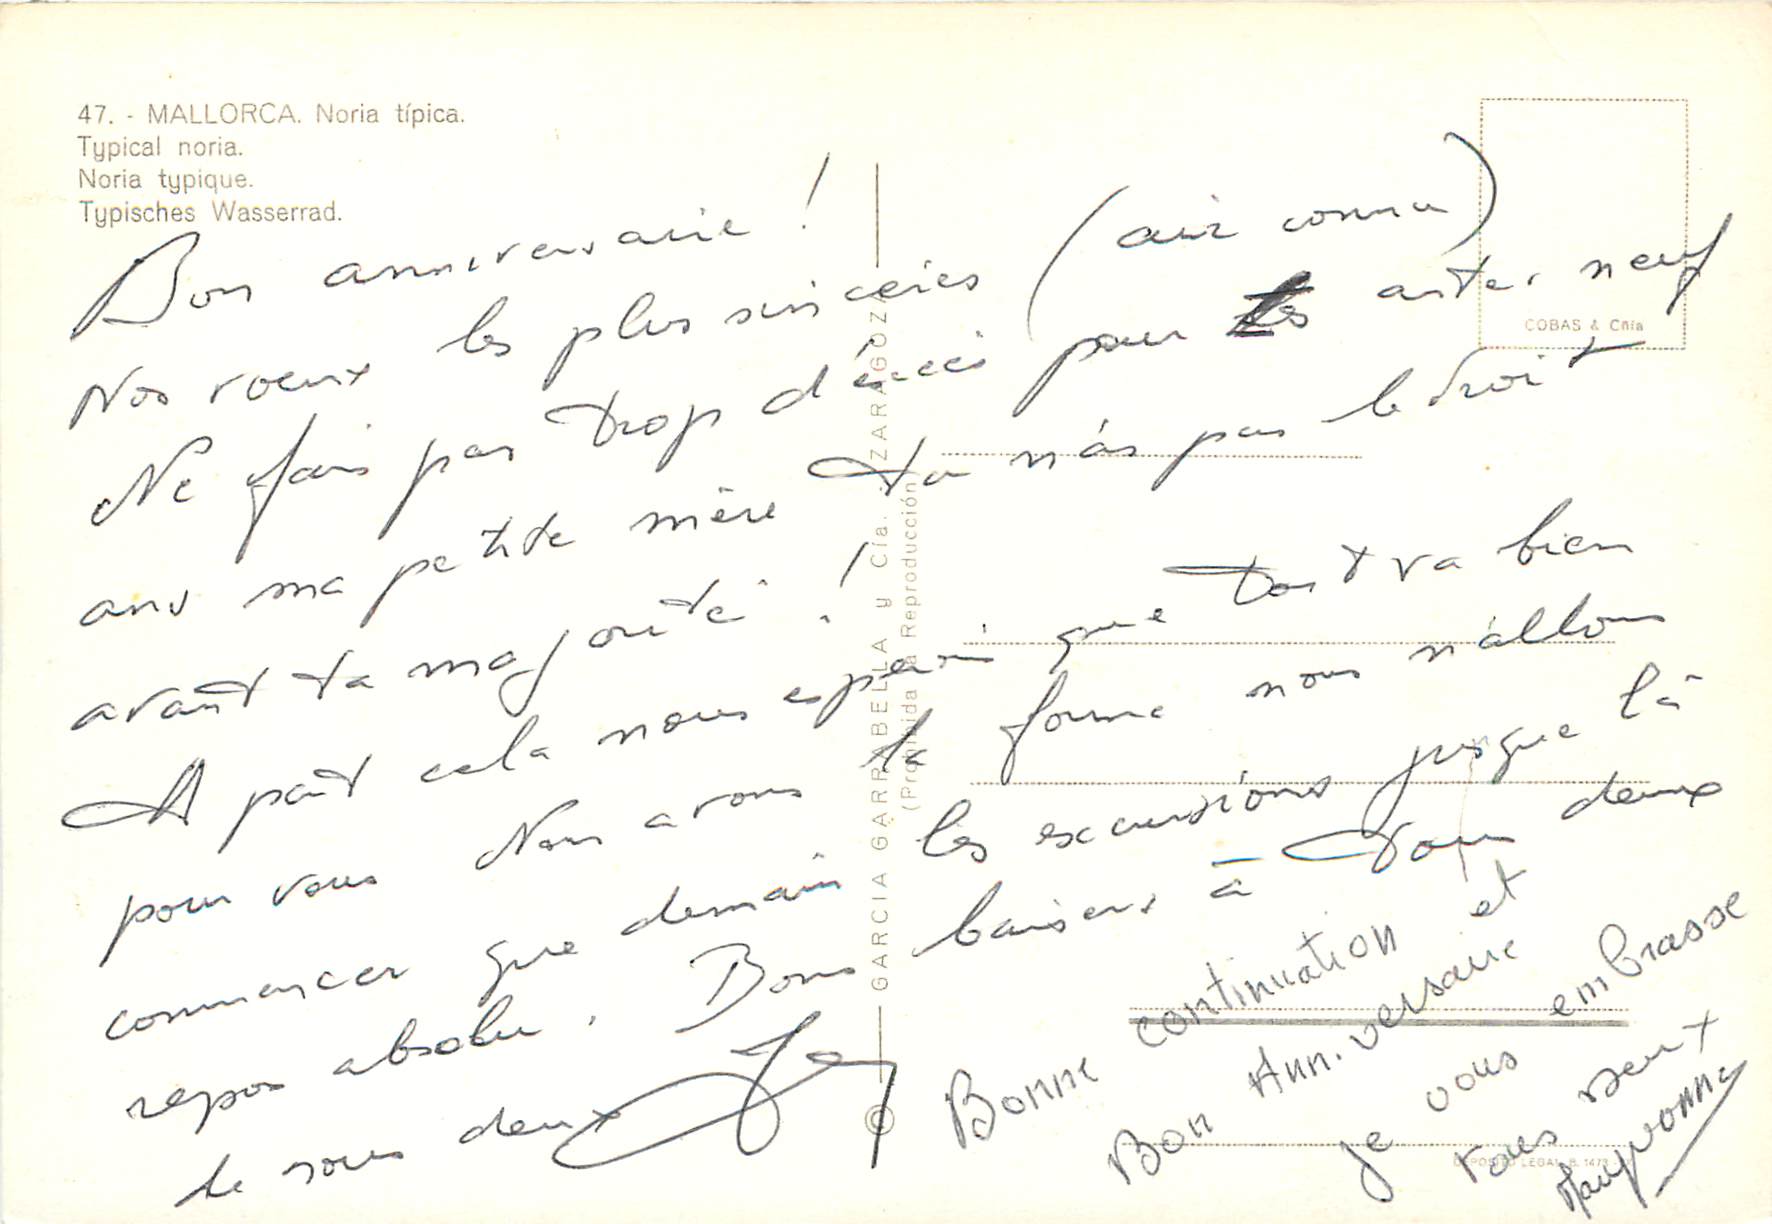 47. - MALLORCA. Noria típica.
Typical noria.
Noria typique.
Typisches Wasserrad.
Bon anniversaire !
Nos voeux les plus sincères (air connu)
Ne fais pas trop d'éccès pour tes av̶ neuf
ans ma petite mère Tu n'as pas le droit
avant ta majorité !
A part cela nous espérons que tout va bien
pour vous Nous avons la forme nous n'allons
commencer que demain les excursions jusque là
repos absolu. Bons baisers à vous deux
de nous deux
Bonne continuation et
Bon Anniversaire
je vous embrasse
tous deux
Maryvonne
COBAS & Cñía
GARCIA GARRABELLA y Cía. - ZARAGOZA
(Prohibida la Reproducción)
DEPOSITO LEGAL B. 1473